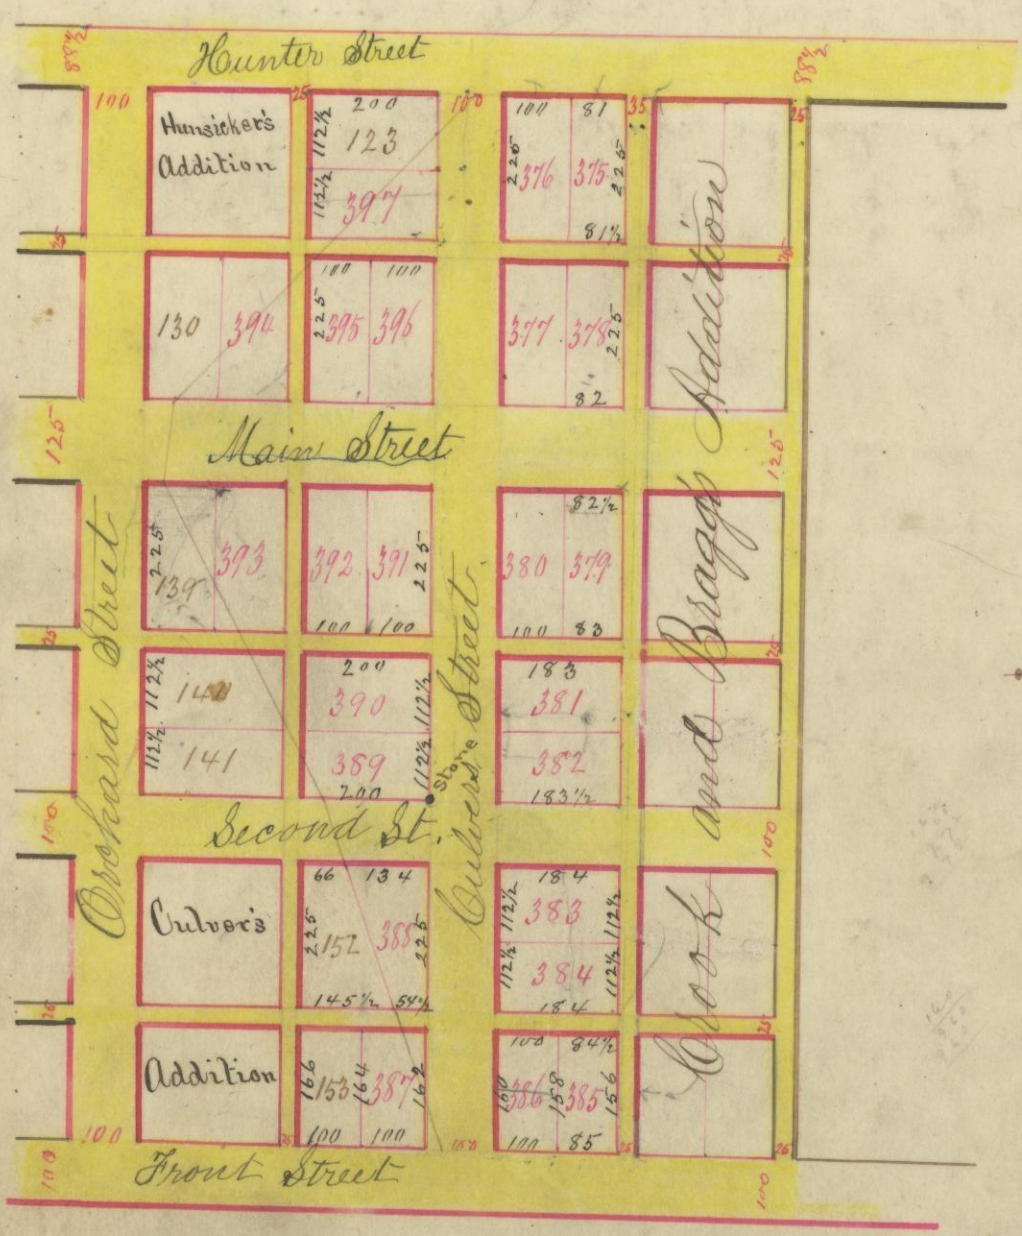 88½
Hunter Street
88½
100
Hunsicker's
Addition
25
200
112½
123
112½
397
100
100
81
225
376
375
225
81½
35
25
25
130
394
100
100
225
395
396
377
378
225
82
25
125
Main Street
125
225
139
393
392
391
225
100
100
82½
380
379
100
83
25
25
112½
140
112½
141
200
390
112½
389
112½
200
Stone
183
381
382
183½
100
Second St.
100
Orchard Street
Culvers Street
Crook and Bragg's Addition
Culver's
66
134
225
152
388
225
145½
54½
184
112½
383
112½
112½
384
112½
184
25
25
Addition
166
153
164
387
162
100
100
100
84½
386
158
385
156
100
85
100
25
25
25
100
Front Street
100